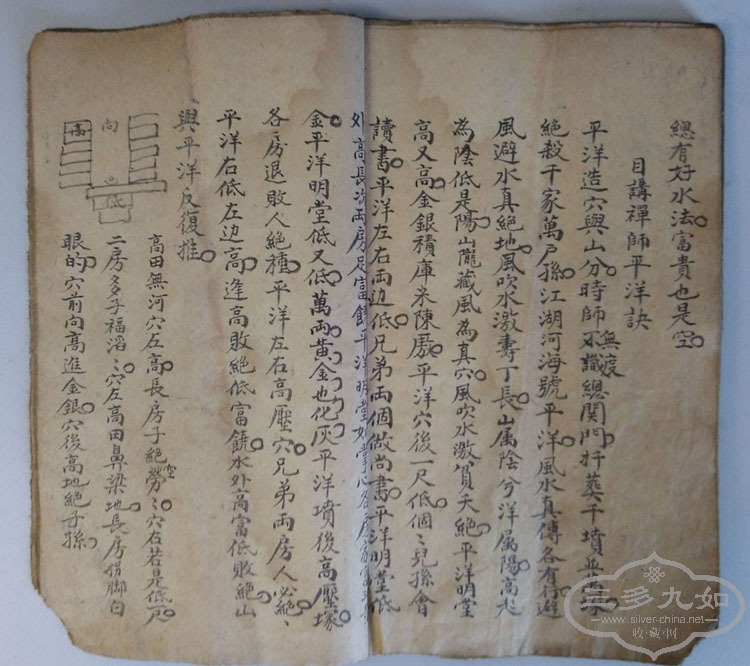 總有好水法富貴也是空
目講禪師平洋訣
平洋造穴與山分時師不識總関門扦葬千墳並
無渡
絕殺千家萬戶孫江湖河海號平洋風水真傳各有行避
風避水真絕地風吹水激壽丁長山属陰兮洋属陽高起
為陰低是陽山龍藏風為真穴風吹水激貧夭絕平洋明堂
高又高金銀積庫米陳廒平洋穴後一尺低個〻兒孫會
讀書平洋左右両边低兄弟両個做尚書平洋明堂低
外高長流両房足富饒平洋明堂如掌心各房
金平洋明堂低又低萬両黄金也化灰平洋墳後高壓塚
各房退敗人絕種平洋左右高壓穴兄弟両房人必絕
平洋右低左边高逢高敗絕低富饒水外高富低敗絕山
與平洋反復推
高
向
低
高田無河穴左高長房子絕勞〻穴右若是低一尺
空
二房多子福滔〻穴左高田鼻梁地長房拐脚白
眼的穴前向高進金銀穴後高地絕子孫
三多九如
www.silver-china.net
收·藏·网